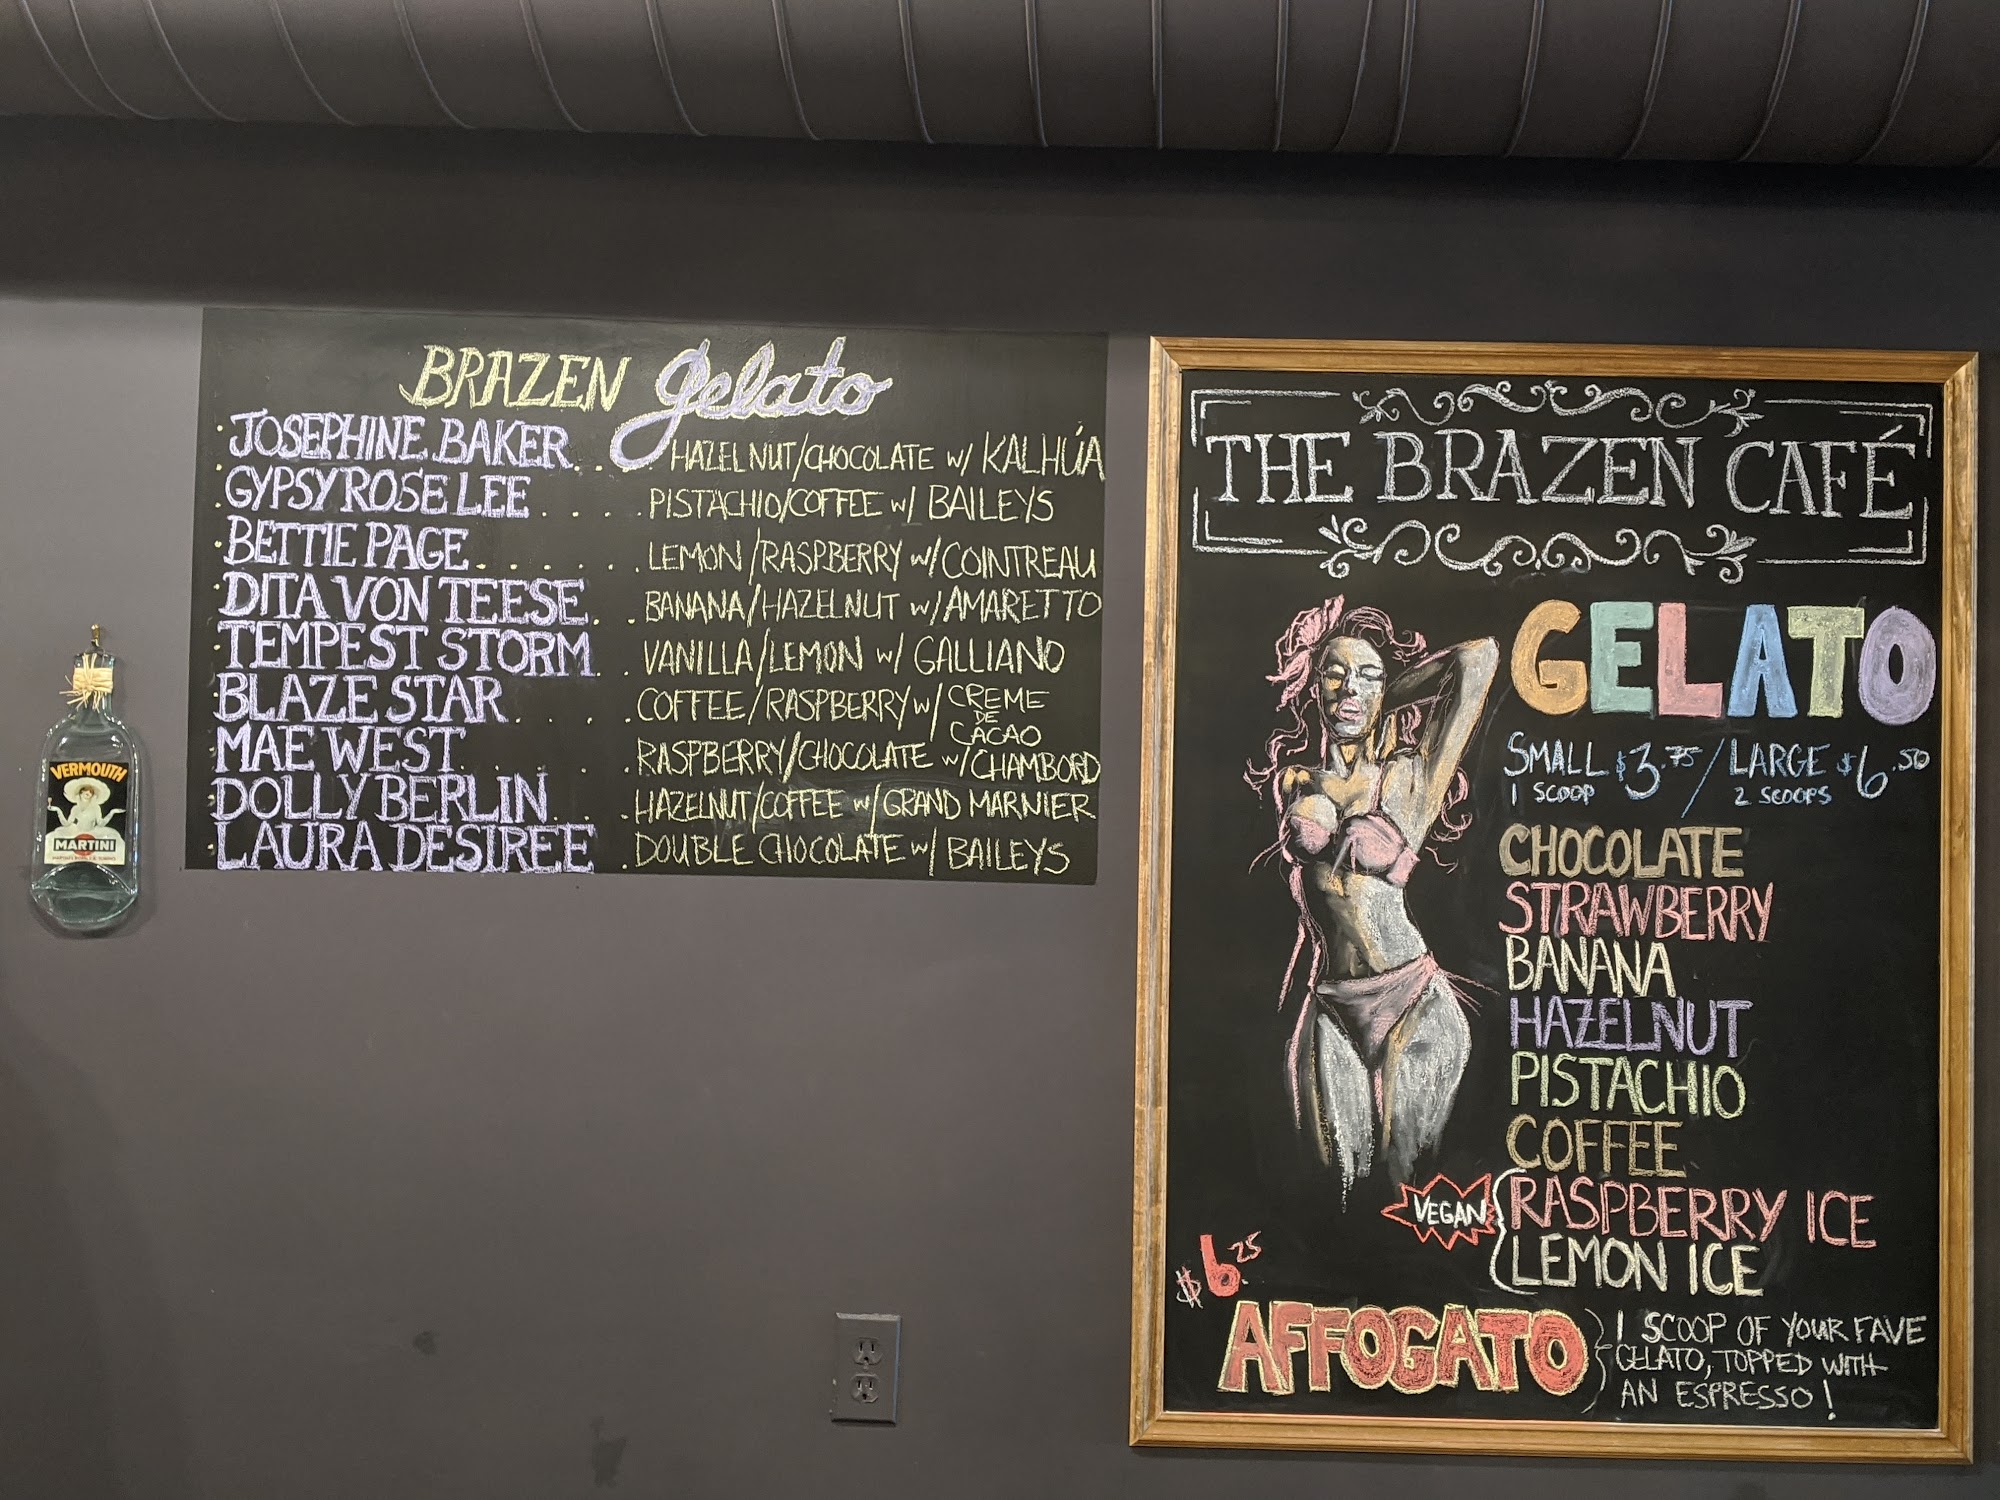 BRAZEN gelato
· JOSEPHINE BAKER. . . . HAZELNUT/CHOCOLATE w/ KALHÚA
· GYPSY ROSE LEE . . . . PISTACHIO/COFFEE w/ BAILEYS
· BETTIE PAGE . . . . . . LEMON/RASPBERRY w/ COINTREAU
· DITA VON TEESE . . BANANA/HAZELNUT w/ AMARETTO
· TEMPEST STORM . . VANILLA/LEMON w/ GALLIANO
· BLAZE STAR . . . . COFFEE/RASPBERRY w/ CREME DE CACAO
· MAE WEST . . . . RASPBERRY/CHOCOLATE w/ CHAMBORD
· DOLLY BERLIN . . . HAZELNUT/COFFEE w/ GRAND MARNIER
· LAURA DESIREE . DOUBLE CHOCOLATE w/ BAILEYS
VERMOUTH
MARTINI
THE BRAZEN CAFÉ
GELATO
SMALL $3.75 / LARGE $6.50
1 SCOOP 2 SCOOPS
CHOCOLATE
STRAWBERRY
BANANA
HAZELNUT
PISTACHIO
COFFEE
VEGAN { RASPBERRY ICE
LEMON ICE
$6.25
AFFOGATO } 1 SCOOP OF YOUR FAVE
GELATO, TOPPED WITH
AN ESPRESSO!